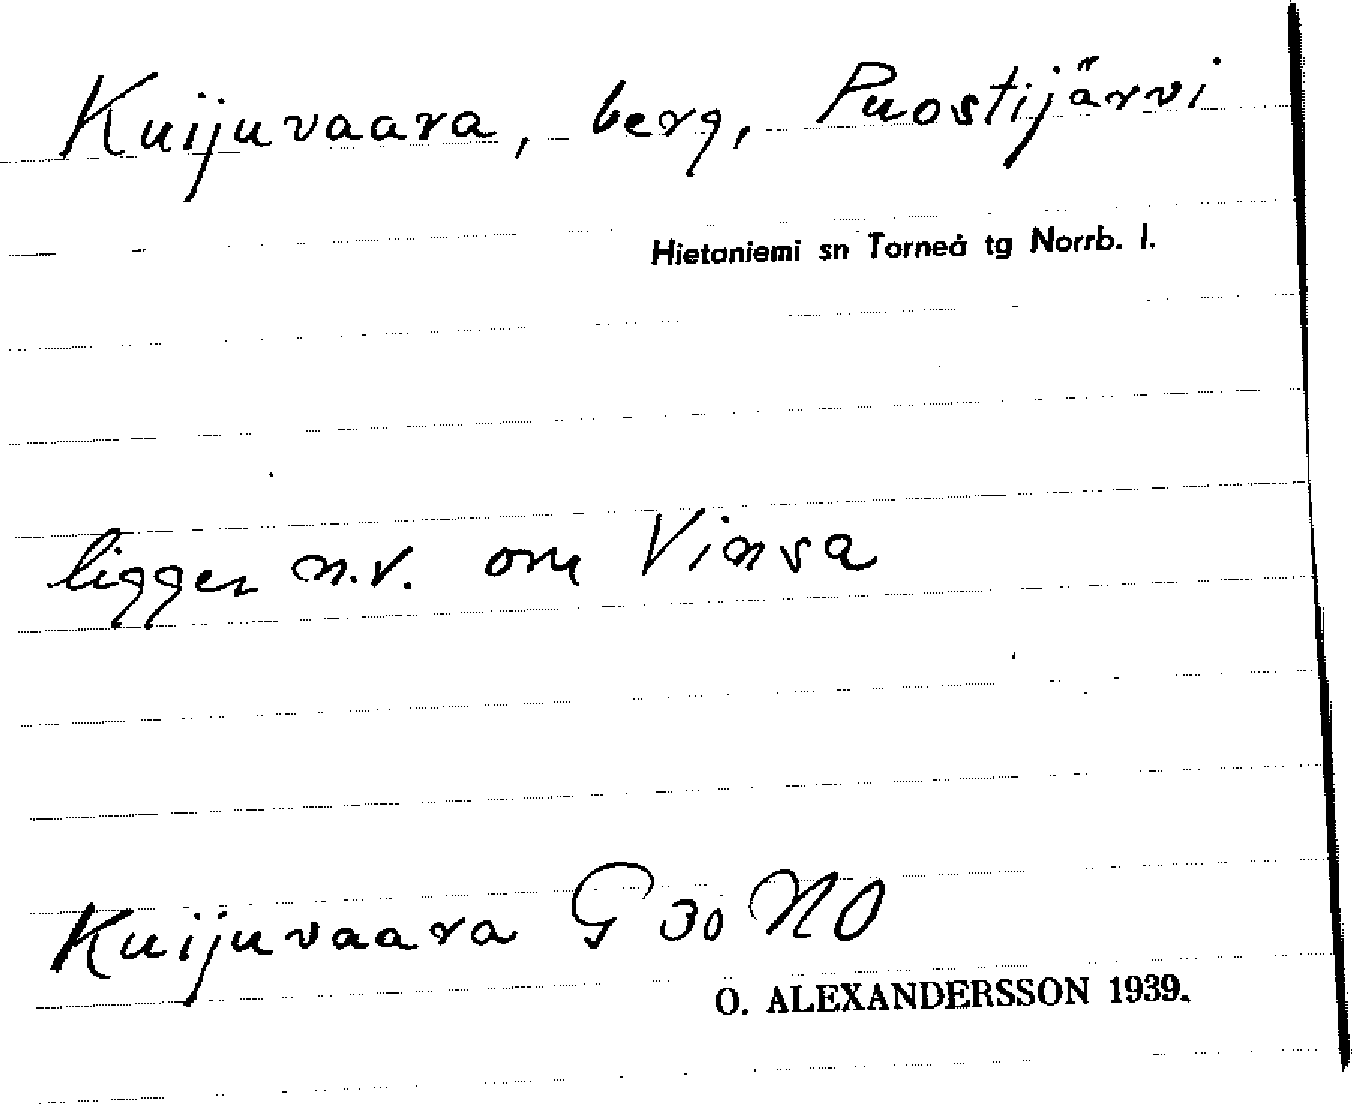 Kuijuvaara, berg, Puostijärvi
Hietaniemi sn Torneå tg Norrb. l.
ligger n.v. om Vinsa
Kuijuvaara G 30 NO
O. ALEXANDERSSON 1939.